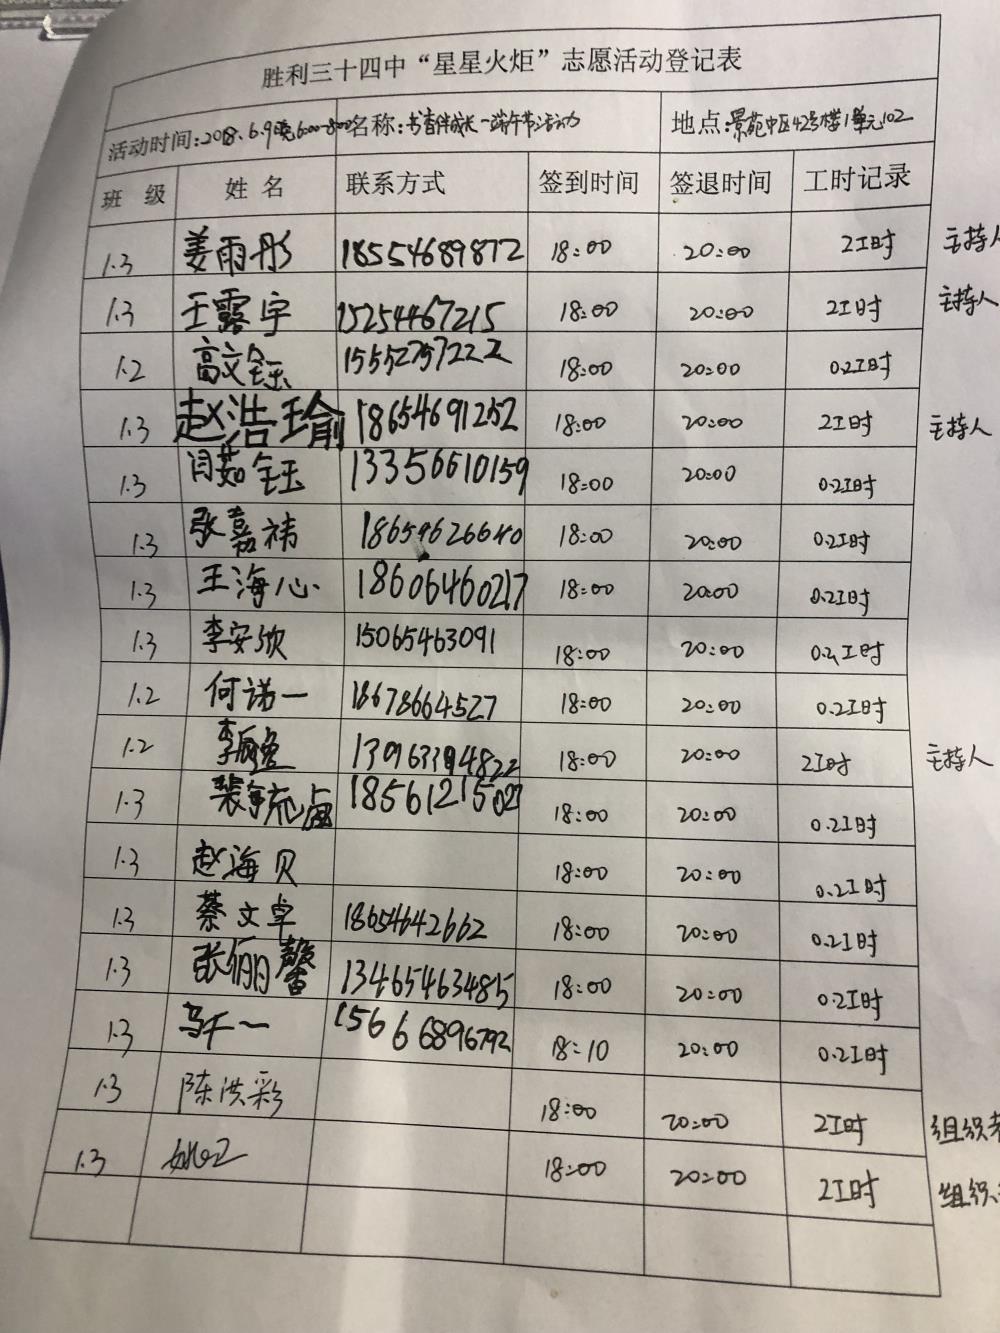 胜利三十四中“星星火炬”志愿活动登记表
活动时间:2018.6.9晚6:00-8:00 名称:书香伴成长—端午节活动 地点:景苑中区42号楼1单元102
班 级 姓 名 联系方式 签到时间 签退时间 工时记录
1.3 姜雨彤 18554689872 18:00 20:00 2工时 主持人
1.3 王露宇 15254467215 18:00 20:00 2工时 主持人
1.2 高文钰 15552757222 18:00 20:00 0.2工时
1.3 赵浩瑜 18654691252 18:00 20:00 2工时 主持人
1.3 闫茹钰 13356610159 18:00 20:00 0.2工时
1.3 张嘉祎 18654626640 18:00 20:00 0.2工时
1.3 王海心 18606460217 18:00 20:00 0.2工时
1.3 李安欣 15065463091 18:00 20:00 0.2工时
1.2 何诺一 18678664527 18:00 20:00 0.2工时
1.2 李 18:00 20:00 2工时 主持人
1.3 裴 18:00 20:00 0.2工时
1.3 赵海贝 18:00 20:00 0.2工时
1.3 蔡文卓 18654642662 18:00 20:00 0.2工时
1.3 张俪馨 13465463485 18:00 20:00 0.2工时
1.3 马千一 15666896792 18:10 20:00 0.2工时
1.3 陈洪彩 18:00 20:00 2工时 组织
1.3 18:00 20:00 2工时 组织